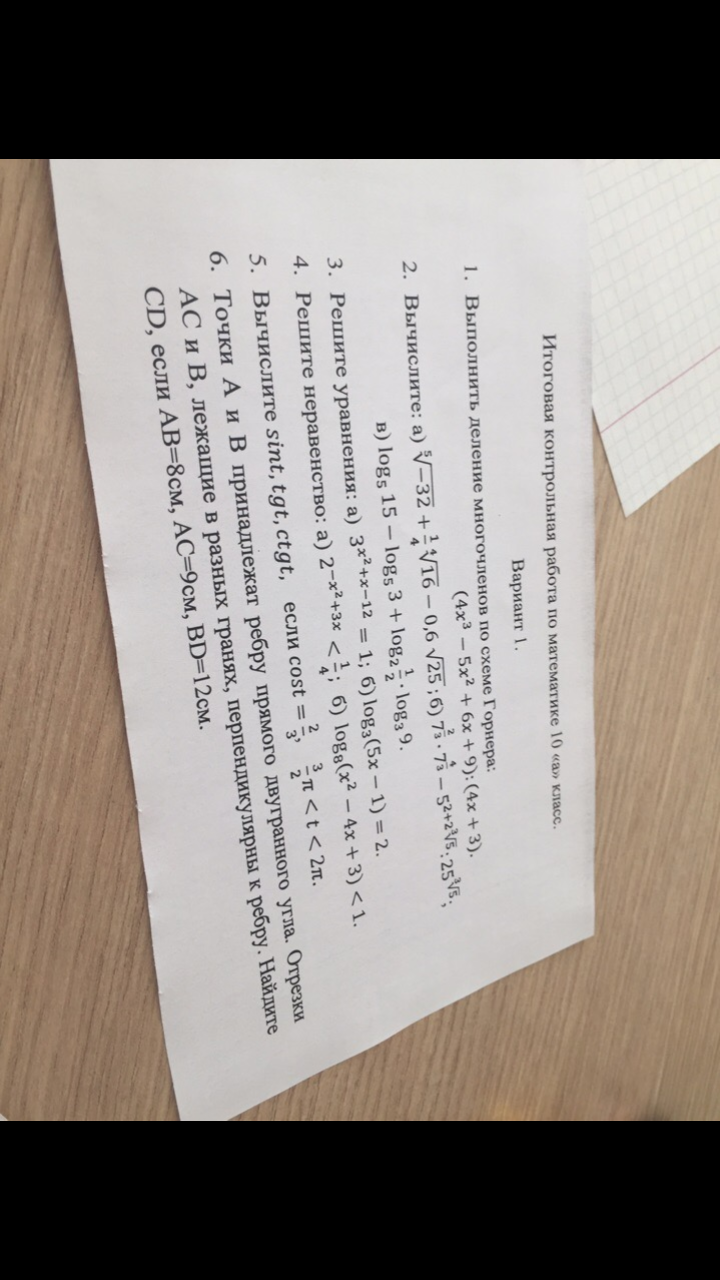 Итоговая контрольная работа по математике 10 «а» класс.
Вариант 1.
1. Выполнить деление многочленов по схеме Горнера:
(4x³ − 5x² + 6x + 9): (4x + 3).
2. Вычислите: а) ⁵√−32 + 1/4 ⁴√16 − 0,6 √25 ; б) 7^(2/3) · 7^(4/3) − 5^(2+2∛5) : 25^(∛5);
в) log₅ 15 − log₅ 3 + log₂ 1/2 · log₃ 9.
3. Решите уравнения: а) 3^(x²+x−12) = 1; б) log₃(5x − 1) = 2.
4. Решите неравенство: а) 2^(−x²+3x) < 1/4; б) log₈(x² − 4x + 3) < 1.
5. Вычислите sint, tgt, ctgt, если cost = 2/3, 3/2 π < t < 2π.
6. Точки А и В принадлежат ребру прямого двугранного угла. Отрезки
АС и В, лежащие в разных гранях, перпендикулярны к ребру. Найдите
CD, если АВ=8см, АС=9см, BD=12см.